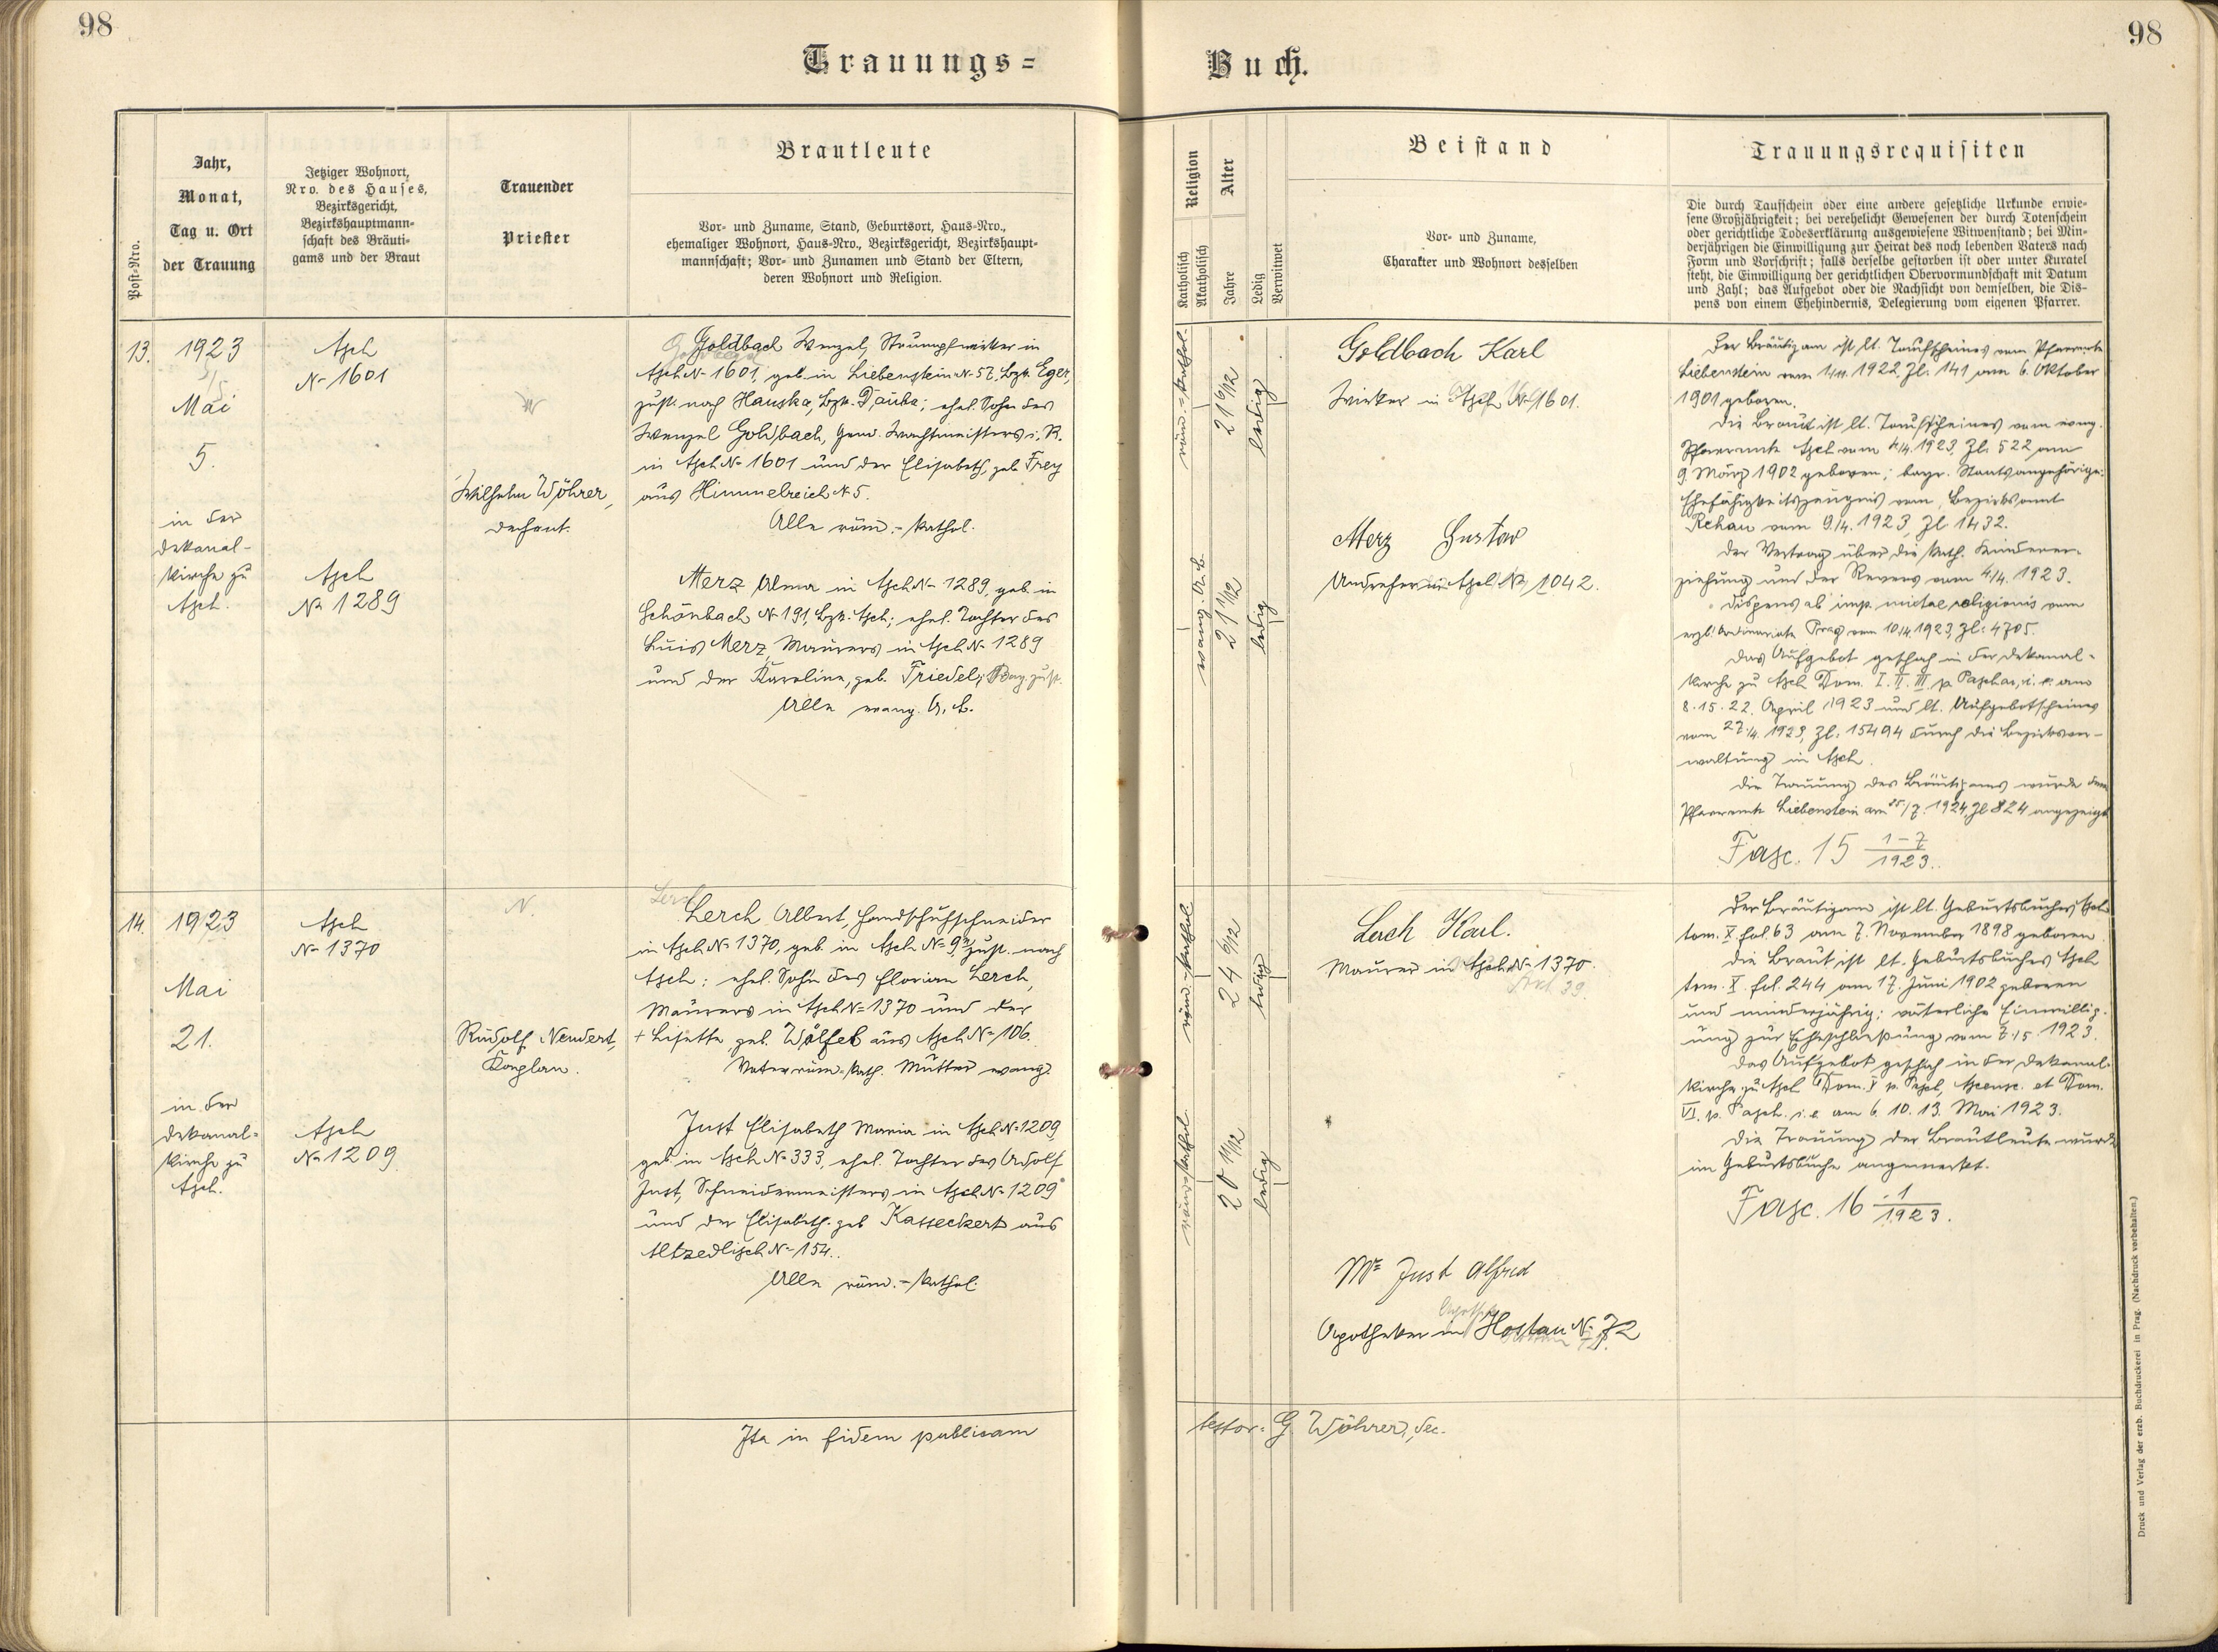 98
98
Trauungs=
Buch.
Post=Nro.
Jahr,
Monat,
Tag u. Ort
der Trauung
Jetziger Wohnort,
Nro. des Hauses,
Bezirksgericht,
Bezirkshauptmann-
schaft des Bräuti-
gams und der Braut
Trauender
Priester
Brautleute
Vor- und Zuname, Stand, Geburtsort, Haus=Nro.,
ehemaliger Wohnort, Haus=Nro., Bezirksgericht, Bezirkshaupt-
mannschaft; Vor- und Zunamen und Stand der Eltern,
deren Wohnort und Religion.
Religion
Katholisch
Akatholisch
Alter
Jahre
Ledig
Verwitwet
Beistand
Vor- und Zuname,
Charakter und Wohnort desselben
Trauungsrequisiten
Die durch Taufschein oder eine andere gesetzliche Urkunde erwie-
sene Großjährigkeit; bei verehelicht Gewesenen der durch Totenschein
oder gerichtliche Todeserklärung ausgewiesene Witwenstand; bei Min-
derjährigen die Einwilligung zur Heirat des noch lebenden Vaters nach
Form und Vorschrift; falls derselbe gestorben ist oder unter Kuratel
steht, die Einwilligung der gerichtlichen Obervormundschaft mit Datum
und Zahl; das Aufgebot oder die Nachsicht von demselben, die Dis-
pens von einem Ehehindernis, Delegierung vom eigenen Pfarrer.
13.
1923
Mai
5.
in der
Dekanal-
kirche zu
Asch.
Asch
No 1601
Asch
No 1289
Wilhelm Wöhrer,
Dechant.
Goldbach Wenzel, Strumpfwirker in
Asch No 1601, geb. in Liebenstein No 57, Bzk. Eger,
zust. nach Hauska, Bzk. Dauba; ehel. Sohn des
Wenzel Goldbach, Gend. Wachtmeisters i. R.
in Asch No 1601 und der Elisabeth, geb. Frey
aus Himmelreich No 5.
Alle röm.-kathol.
Merz Alma in Asch No 1289, geb. in
Schönbach No 191, Bzk. Asch; ehel. Tochter des
Luis Merz, Maurers in Asch No 1289
und der Karoline, geb. Friedel, Bay. zust.
Alle evang. A. B.
röm.-kathol.
21 6/12
ledig
evang. A. B.
21 1/12
ledig
Goldbach Karl
Wirker in Asch No 1601.
Merz Gustav
Andreher in Asch No 1042.
Der Bräutigam ist lt. Taufscheines vom Pfarramte
Liebenstein vom 1922, Zl. 141 am 6. Oktober
1901 geboren.
Die Braut ist lt. Taufscheines vom evang.
Pfarramte Asch vom 4/4. 1923, Zl. 522 am
9. März 1902 geboren; bayr. Staatsangehörige.
Ehefähigkeitszeugnis vom Bezirksamt
Rehau vom 9/4. 1923, Zl. 1432.
Der Vertrag über die kath. Kinderer-
ziehung und der Revers vom 4/4. 1923.
Dispens ab imp. mixtae religionis vom
erzb. Ordinariate Prag vom 10/4 1923, Zl: 4705.
Das Aufgebot geschah in der Dekanal-
kirche zu Asch Dom. I. II. III. p. Pascha, i. e. am
8. 15. 22. April 1923 und lt. Aufgebotscheines
vom 1923, Zl: 15494 durch die Bezirksver-
waltung in Asch.
Die Trauung des Bräutigams wurde dem
Pfarramte Liebenstein am 25/7. 1924, Zl 824 angezeigt
Fasc. 15 1-7/1923.
14.
1923
Mai
21.
in der
Dekanal-
kirche zu
Asch.
Asch
No 1370
Asch
No 1209
N.
Rudolf Neudert,
Kaplan.
Lerch Albert, Handschuhschneider
in Asch No 1370, geb. in Asch No 9, zust. nach
Asch; ehel. Sohn des Florian Lerch,
Maurers in Asch No 1370 und der
+ Lisette, geb. Wölfel aus Asch No 106.
Vater röm.-kath. Mutter evang.
Just Elisabeth Maria in Asch No 1209,
geb. in Asch No 333, ehel. Tochter des Adolf
Just, Schneidermeisters in Asch No 1209
und der Elisabeth geb. Kasseckert aus
Altzedlisch No 154.
Alle röm.-kathol.
röm.-kathol.
24 6/12
ledig
röm.-kathol.
20 11/12
ledig
Lerch Karl.
Maurer in Asch No 1370.
Mr Just Alfred
Apotheker in Hostau No 72
Der Bräutigam ist lt. Geburtsbuches Asch
tom. X. fol. 63 am 7. November 1898 geboren.
Die Braut ist lt. Geburtsbuches Asch
tom. X. fol. 244 am 17. Juni 1902 geboren
und minderjährig; väterliche Einwillig-
ung zur Eheschließung vom 7. 5. 1923.
Das Aufgebot geschah in der Dekanal-
kirche zu Asch Dom. V p. Pasch, Ascens. et Dom.
VI. p. Pasch. i. e. am 6. 10. 13. Mai 1923.
Die Trauung der Brautleute wurde
im Geburtsbuche angemerkt.
Fasc. 16 1/1923.
Ita in fidem publicam
testor: G Wöhrer, Dec.
Druck und Verlag der erzb. Buchdruckerei in Prag. (Nachdruck vorbehalten.)